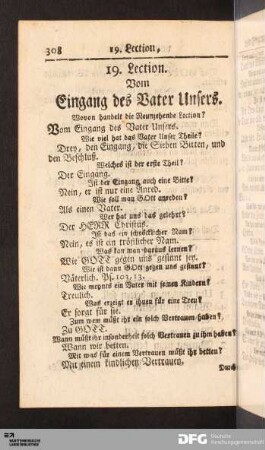 308 19. Lection,
19. Lection.
Vom
Eingang des Vater Unsers.
Wovon handelt die Neunzehende Lection?
Vom Eingang des Vater Unsers.
Wie viel hat das Vater Unser Theile?
Drey, den Eingang, die Sieben Bitten, und
den Beschluß.
Welches ist der erste Theil?
Der Eingang.
Ist der Eingang auch eine Bitte?
Nein, er ist nur eine Anred.
Wie soll man GOtt anreden?
Als einen Vater.
Wer hat uns das gelehrt?
Der HERR Christus.
Ist das ein schröcklicher Nam?
Nein, es ist ein tröstlicher Nam.
Was kan man daraus lernen?
Wie GOTT gegen uns gesinnt sey.
Wie ist dann GOtt gegen uns gesinnt?
Väterlich. Ps. 103, 13.
Wie meynts ein Vater mit seinen Kindern?
Treulich.
Was erzeigt er ihnen für eine Treu?
Er sorgt für sie.
Zu wem müßt ihr ein solch Vertrauen haben?
Zu GOTT.
Wann müßt ihr insonderheit solch Vertrauen zu ihm haben?
Wann wir betten.
Mit was für einem Vertrauen müßt ihr betten?
Mit einem kindlichen Vertrauen.
Durch
DFG Deutsche
Forschungsgemeinschaft